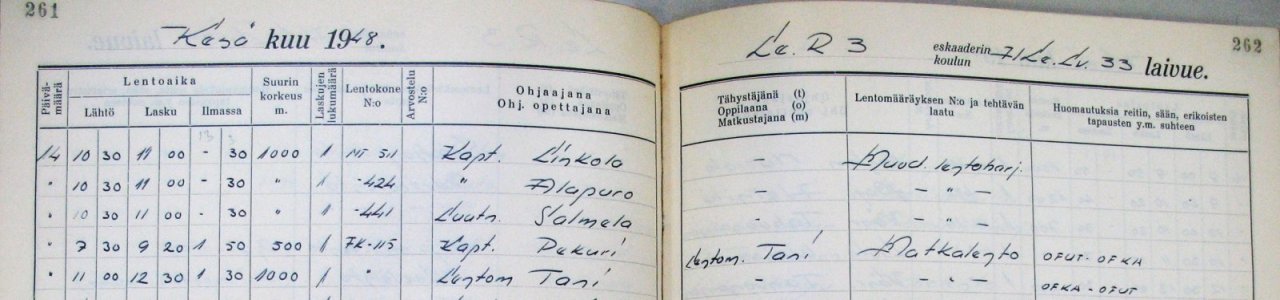 261
Kesä kuu 1948.
Päivä-
määrä
Lentoaika
Lähtö Lasku Ilmassa
Suurin
korkeus
m.
Laskujen
lukumäärä
Lentokone
N:o
Arvostelu
N:o
Ohjaajana
Ohj. opettajana
14 10 30 11 00 - 30 1000 1 MT 511 Kapt. Linkola
" 10 30 11 00 - 30 " 1 -424 " Alapuro
" 10 30 11 00 - 30 " 1 -441 Luutn. Salmela
" 7 30 9 20 1 50 500 1 FK-115 Kapt. Pekuri
" 11 00 12 30 1 30 1000 1 " Lentom Tani
262
Le. R 3 eskaaderin
koulun 7/Le.Lv. 33 laivue.
Tähystäjänä (t)
Oppilaana (o)
Matkustajana (m)
Lentomääräyksen N:o ja tehtävän
laatu
Huomautuksia reitin, sään, erikoisten
tapausten y.m. suhteen
- Muod. lentoharj.
- - " -
- - " -
Lentom. Tani Matkalento OFUT-OFKA
- - " - OFKA-OFUT